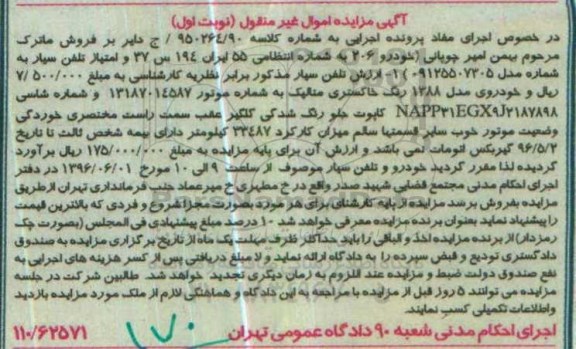 آگهی مزایده اموال غیر منقول (نوبت اول)
در خصوص اجرای مفاد پرونده اجرایی به شماره کلاسه ۹۵۰۲۶۴/۹۰ / ج دایر بر فروش ماترک
مرحوم بیمن امیر چوپانی (خودرو ۲۰۶ به شماره انتظامی ۵۵ ایران ۱۹۴ س ۳۷ و امتیاز تلفن سیار به
شماره مدل ۰۹۱۲۵۵۰۷۳۰۵) ۱- ارزش تلفن سیار مذکور برابر نظریه کارشناسی به مبلغ ۷/۵۰۰/۰۰۰
ریال و خودروی مدل ۱۳۸۸ رنگ خاکستری متالیک به شماره موتور ۱۳۱۸۷۰۱۴۵۸۷ و شماره شاسی
NAPP۳۱EGX۹J۲۱۸۷۸۹۸ کاپوت جلو رنگ شدگی گلگیر عقب سمت راست مختصری خوردگی
وضعیت موتور خوب سایر قسمتها سالم میزان کارکرد ۳۳۴۸۷ کیلومتر دارای بیمه شخص ثالث تا تاریخ
۹۶/۵/۲ گیربکس اتومات نمی باشد و ارزش آن برای پایه مزایده به مبلغ ۱۷۵/۰۰۰/۰۰۰ ریال برآورد
گردیده لذا مقرر گردید خودرو و تلفن سیار موصوف از ساعت ۹ الی ۱۰ مورخ ۱۳۹۶/۰۶/۰۱ در دفتر
اجرای احکام مدنی مجتمع قضایی شهید صدر واقع در خ مطهری خ میرعماد جنب فرمانداری تهران از طریق
مزایده بفروش برسد مزایده از پایه کارشناسی برای هر مورد بصورت مجزا شروع و فردی که بالاترین قیمت
را پیشنهاد نماید بعنوان برنده مزایده معرفی خواهد شد ۱۰ درصد مبلغ پیشنهادی فی المجلس (بصورت چک
رمزدار) از برنده مزایده اخذ و الباقی را باید حداکثر ظرف مهلت یک ماه از تاریخ برگزاری مزایده به صندوق
دادگستری تودیع و قبض سپرده را به دادگاه ارائه نماید و لا مبلغ دریافتی پس از کسر هزینه های اجرایی به
نفع صندوق دولت ضبط و مزایده عند اللزوم به زمان دیگری تجدید خواهد شد. طالبین شرکت در جلسه
مزایده می توانند ۵ روز قبل از مزایده با مراجعه به این دادگاه و هماهنگی لازم از ملک مورد مزایده بازدید
واطلاعات تکمیلی کسب نمایند.
اجرای احکام مدنی شعبه ۹۰ دادگاه عمومی تهران ۱۱۰/۶۲۵۷۱
۱۷۰